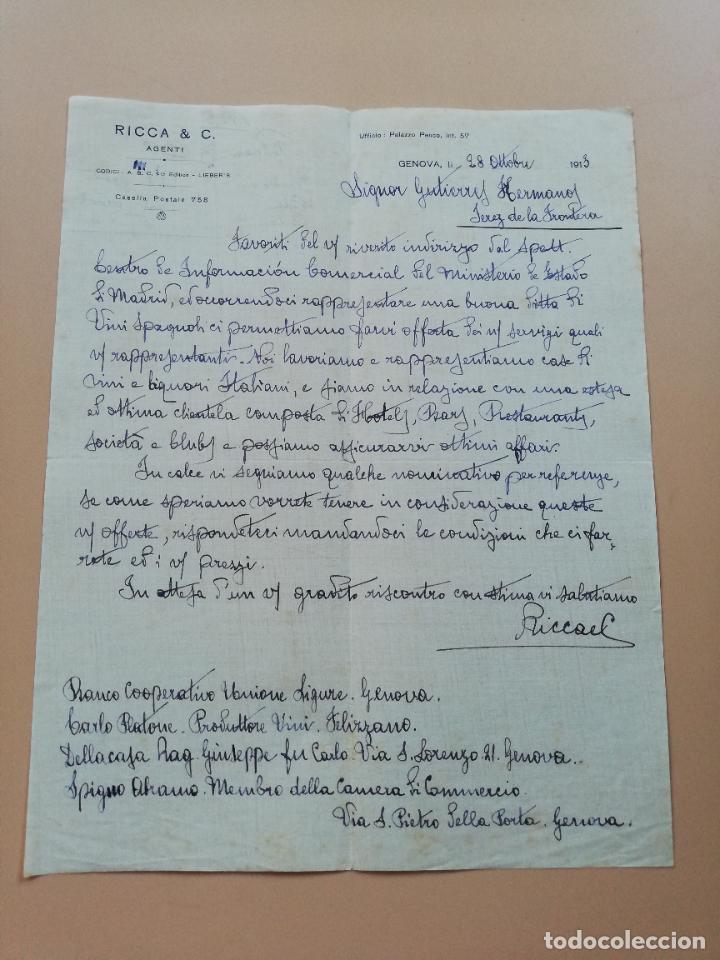 RICCA & C.
AGENTI
CODICI: A. B. C. 5a Edition - LIEBER'S
Casella Postale 758
Ufficio: Palazzo Penco, int. 59
GENOVA, li 28 Ottobre 1913
Signor Gutierrez Hermanos
Jerez de la Frontera
Favoriti del v/ riverito indirizzo dal Spett.
Centro de Información Comercial del Ministerio de Estado
di Madrid, ed occorrendoci rappresentare una buona Ditta di
Vini Spagnoli ci permettiamo farvi offerta dei n/ servizi quali
v/ rappresentanti. Noi lavoriamo e rappresentiamo case di
vini e liquori Italiani, e siamo in relazione con una estesa
ed ottima clientela composta di Hotels, Bars, Restaurants,
società e clubs e possiamo assicurarvi ottimi affari.
In calce vi seguiamo qualche nominativo per referenze,
se come speriamo vorrete tenere in considerazione queste
n/ offerte, rispondeteci mandandoci le condizioni che ci far-
rete ed i v/ prezzi.
In attesa d'un v/ gradito riscontro con stima vi salutiamo
Ricca & C
Banco Cooperativo Unione Ligure. Genova.
Carlo Platone. Produttore Vini. Felizzano.
Dellacasa Rag. Giuseppe fu Carlo. Via S. Lorenzo 21. Genova.
Spigno Abramo. Membro della Camera di Commercio.
Via S. Pietro della Porta. Genova.
todocoleccion.net